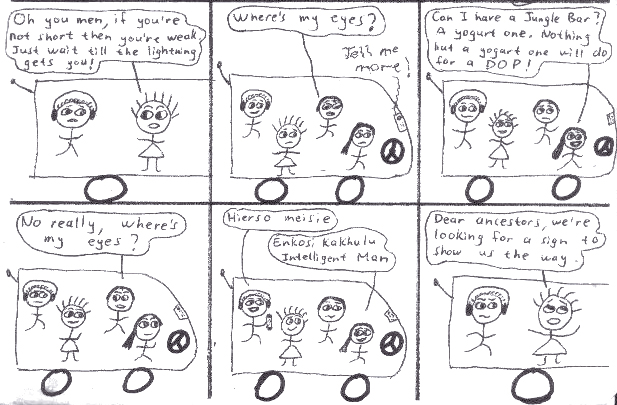 Oh you men, if you're
not short then you're weak.
Just wait till the lightning
gets you!
Where's my eyes?
Tell me
more!
Can I have a Jungle Bar?
A yogurt one. Nothing
but a yogart one will do
for a DOP!
No really, where's
my eyes?
Hierso meisie
Enkosi Kakhulu
Intelligent Man
Dear ancestors, we're
looking for a sign to
show us the way.